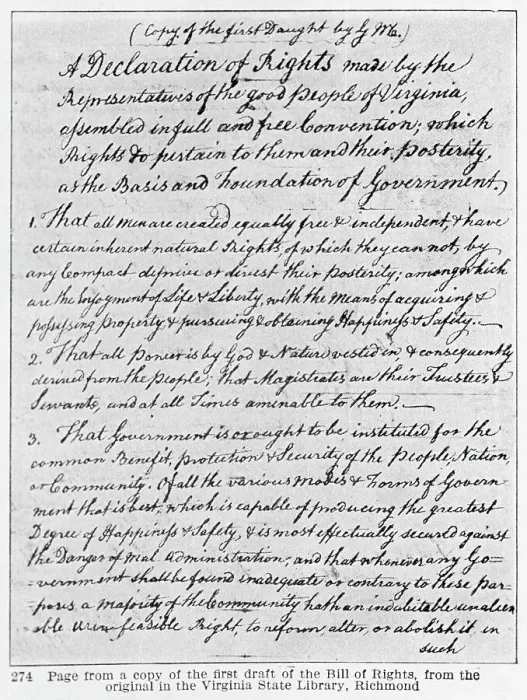 (Copy of the first Daught by G M.)
A Declaration of Rights made by the
Representatives of the good People of Virginia,
assembled in full and free Convention; which
Rights do pertain to them and their Posterity,
as the Basis and Foundation of Government.
1. That all men are created equally free & independent, & have
certain inherent natural Rights, of which they can not, by
any Compact, deprive or divest their Posterity; among which
are the Enjoyment of Life & Liberty, with the Means of acquiring &
possessing Property, & pursueing & obtaining Happiness & Safety.
2. That all Power is by God & Nature vested in, & consequently
derived from the People; that Magistrates are their Trustees &
Servants, and at all Times amenable to them.
3. That Government is or ought to be instituted for the
common Benefit, Protection & Security of the People, Nation
or Community. Of all the various Modes & Forms of Govern-
ment that is best, which is capable of producing the greatest
Degree of Happiness & Safety, & is most effectually secured against
the Danger of mal Administration; and that whenever any Go=
=vernment shall be found inadequate or contrary to these Pur=
=poses, a Majority of the Community hath an indubitable unalien
able & Right, to reform, alter, or abolish it, in
such
274 Page from a copy of the first draft of the Bill of Rights, from the
original in the Virginia State Library, Richmond